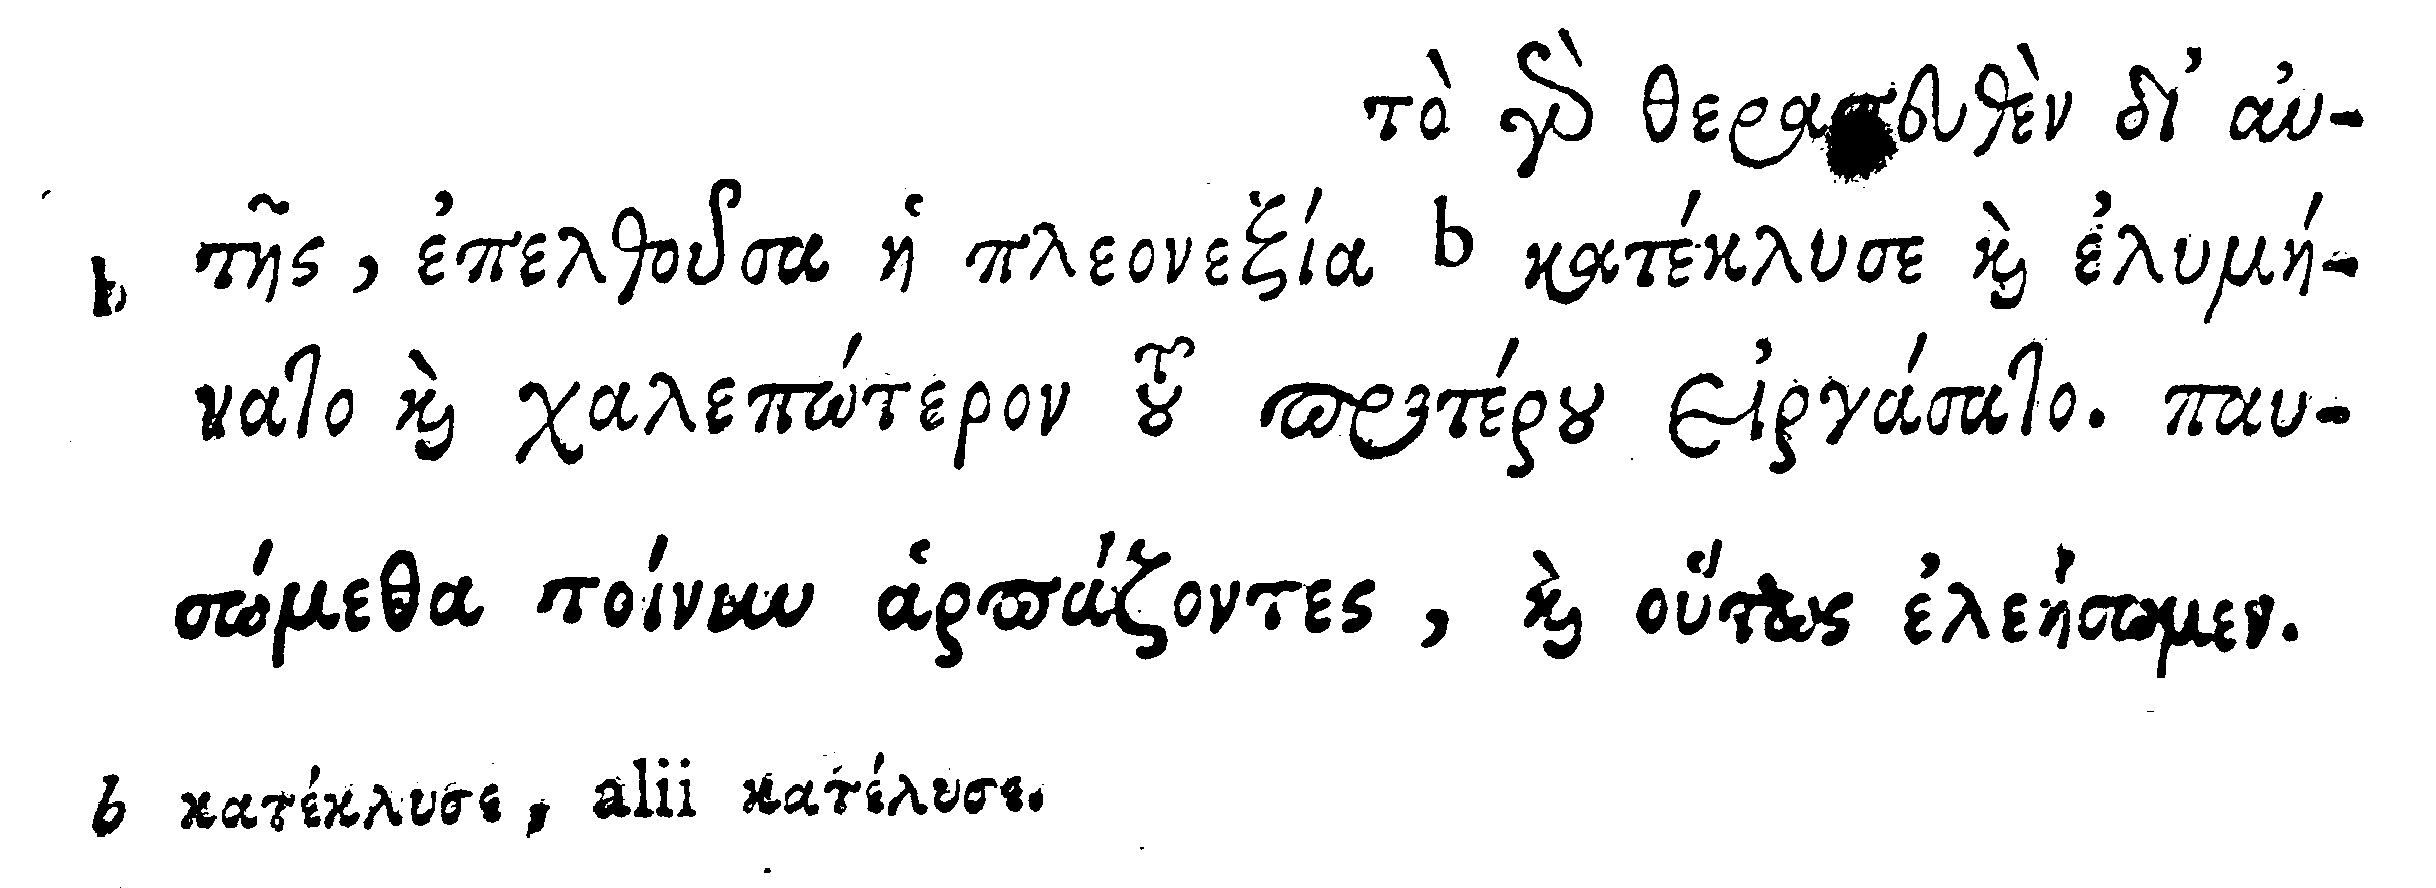 τὸ γὰρ θεραπευθὲν δι' αὐ-
τῆς, ἐπελθοῦσα ἡ πλεονεξία b κατέκλυσε καὶ ἐλυμή-
b
νατο καὶ χαλεπώτερον τοῦ προτέρου εἰργάσατο. παυ-
σώμεθα τοίνυν ἁρπάζοντες, καὶ οὕτως ἐλεήσωμεν.
b κατέκλυσε, alii κατέλυσε.